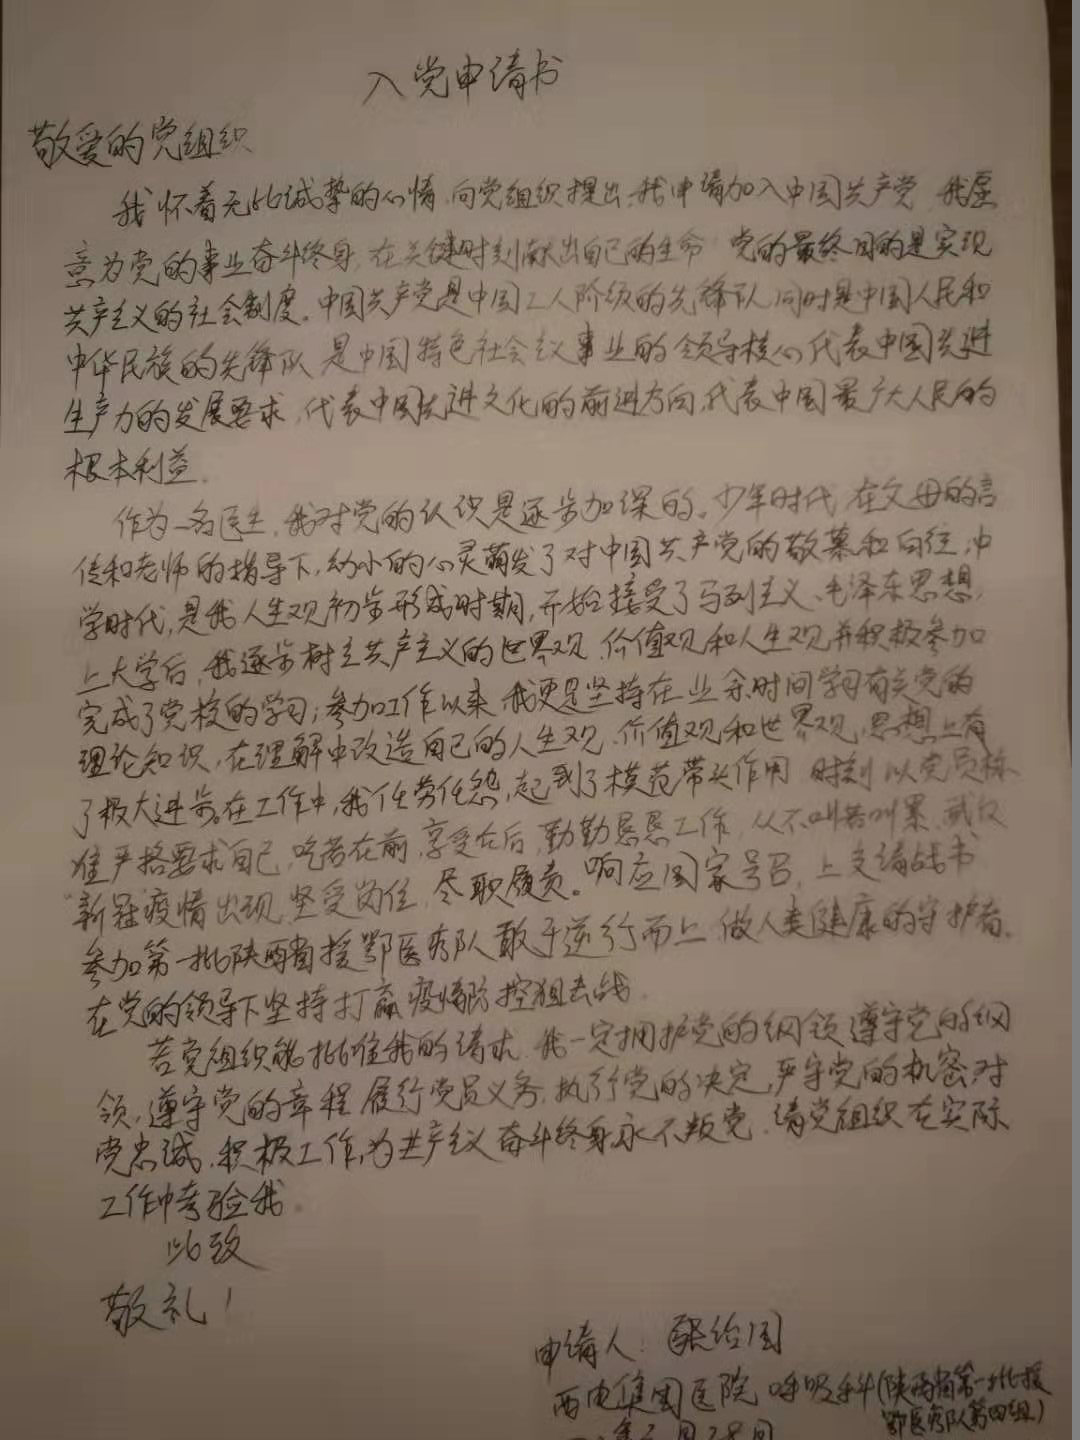 入党申请书
敬爱的党组织
我怀着无比诚挚的心情,向党组织提出,我申请加入中国共产党 我愿
意为党的事业奋斗终身,在关键时刻献出自己的生命 党的最终目的是实现
共产主义的社会制度。中国共产党是中国工人阶级的先锋队,同时是中国人民和
中华民族的先锋队 是中国特色社会主义事业的领导核心,代表中国先进
生产力的发展要求,代表中国先进文化的前进方向,代表中国最广大人民的
根本利益.
作为一名医生,我对党的认识是逐步加深的。少年时代 在父母的言
传和老师的指导下,幼小的心灵萌发了对中国共产党的敬慕和向往,中
学时代,是我人生观初步形成时期,开始接受了马列主义、毛泽东思想,
上大学后,我逐步树立共产主义的世界观、价值观和人生观,并积极参加
完成了党校的学习;参加工作以来 我更是坚持在业余时间学习有关党的
理论知识,在理解中改造自己的人生观、价值观和世界观,思想上有
了极大进步。在工作中,我任劳任怨,起到了模范带头作用 时刻以党员标
准严格要求自己,吃苦在前,享受在后,勤勤恳恳工作,从不叫苦叫累,武汉
新冠疫情出现,坚受岗位,尽职履责。响应国家号召,上交请战书
参加第一批陕西省援鄂医疗队敢于逆行而上 做人类健康的守护者.
在党的领导下坚持打赢疫情防控狙击战.
若党组织能批准我的请求,我一定拥护党的纲领,遵守党的纲
领,遵守党的章程 履行党员义务,执行党的决定,严守党的机密,对
党忠诚,积极工作,为共产主义奋斗终身,永不叛党.请党组织在实际
工作中考验我.
此致
敬礼!
申请人:
西电集团医院 呼吸科(陕西省第一批援
鄂医疗队第四组)